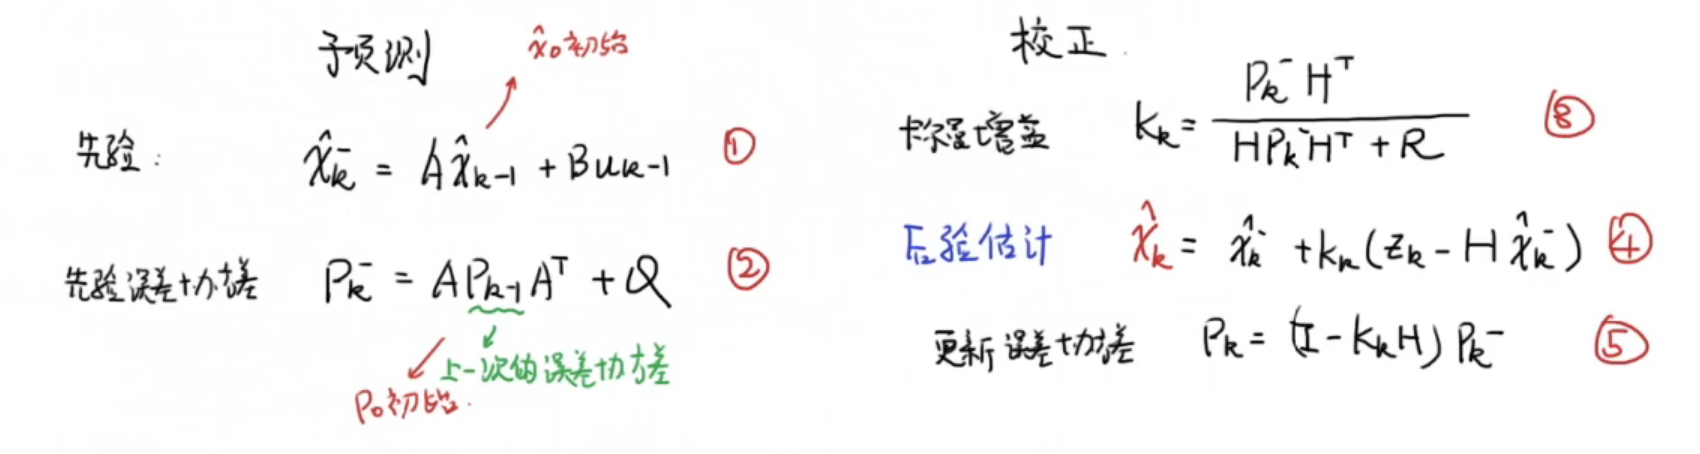 预测
x̂₀初始
先验: x̂ₖ⁻ = A x̂ₖ₋₁ + B uₖ₋₁ ①
先验误差协方差 Pₖ⁻ = A Pₖ₋₁ Aᵀ + Q ②
上一次的误差协方差
P₀初始.
校正
卡尔曼增益 Kₖ = Pₖ⁻ Hᵀ / (H Pₖ⁻ Hᵀ + R) ③
后验估计 x̂ₖ = x̂ₖ⁻ + Kₖ(zₖ - H x̂ₖ⁻) ④
更新误差协方差 Pₖ = (I - KₖH) Pₖ⁻ ⑤